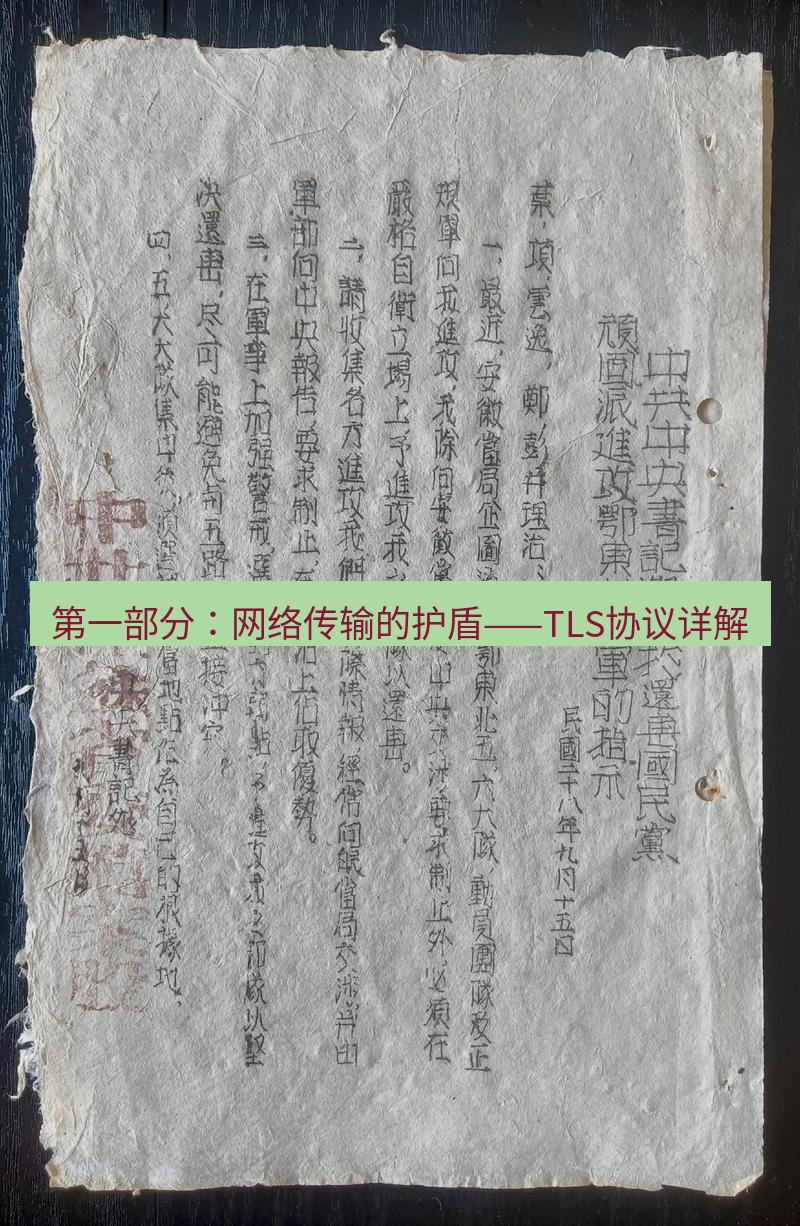 中共中央書記
我還击國民黨
頑固派進攻鄂東
軍的指示
民國二十八年九月十五日
葉,項,雲逸,鄭,彭并理治:
一,最近,安徽當局企圖
鄂東北五,六大隊,動員團隊及正
規軍向我進攻,我除向安徽當
中央交涉,要求制止外,必須在
嚴格自衛立場上予進攻我
隊以還击。
二,請收集各方進攻我們
際情報,經常向皖當局交涉,并由
軍部向中央報告,要求制止,在
治上佔取優勢。
三,在軍事上加强警戒,選
弱點,予進攻我之部隊以堅
決還击,尽可能避免和五路
直接沖突。
四,五,六大隊集中後,須選
當地點作為自己的根據地。
中央書記处
十五日
第一部分：网络传输的护盾——TLS协议详解